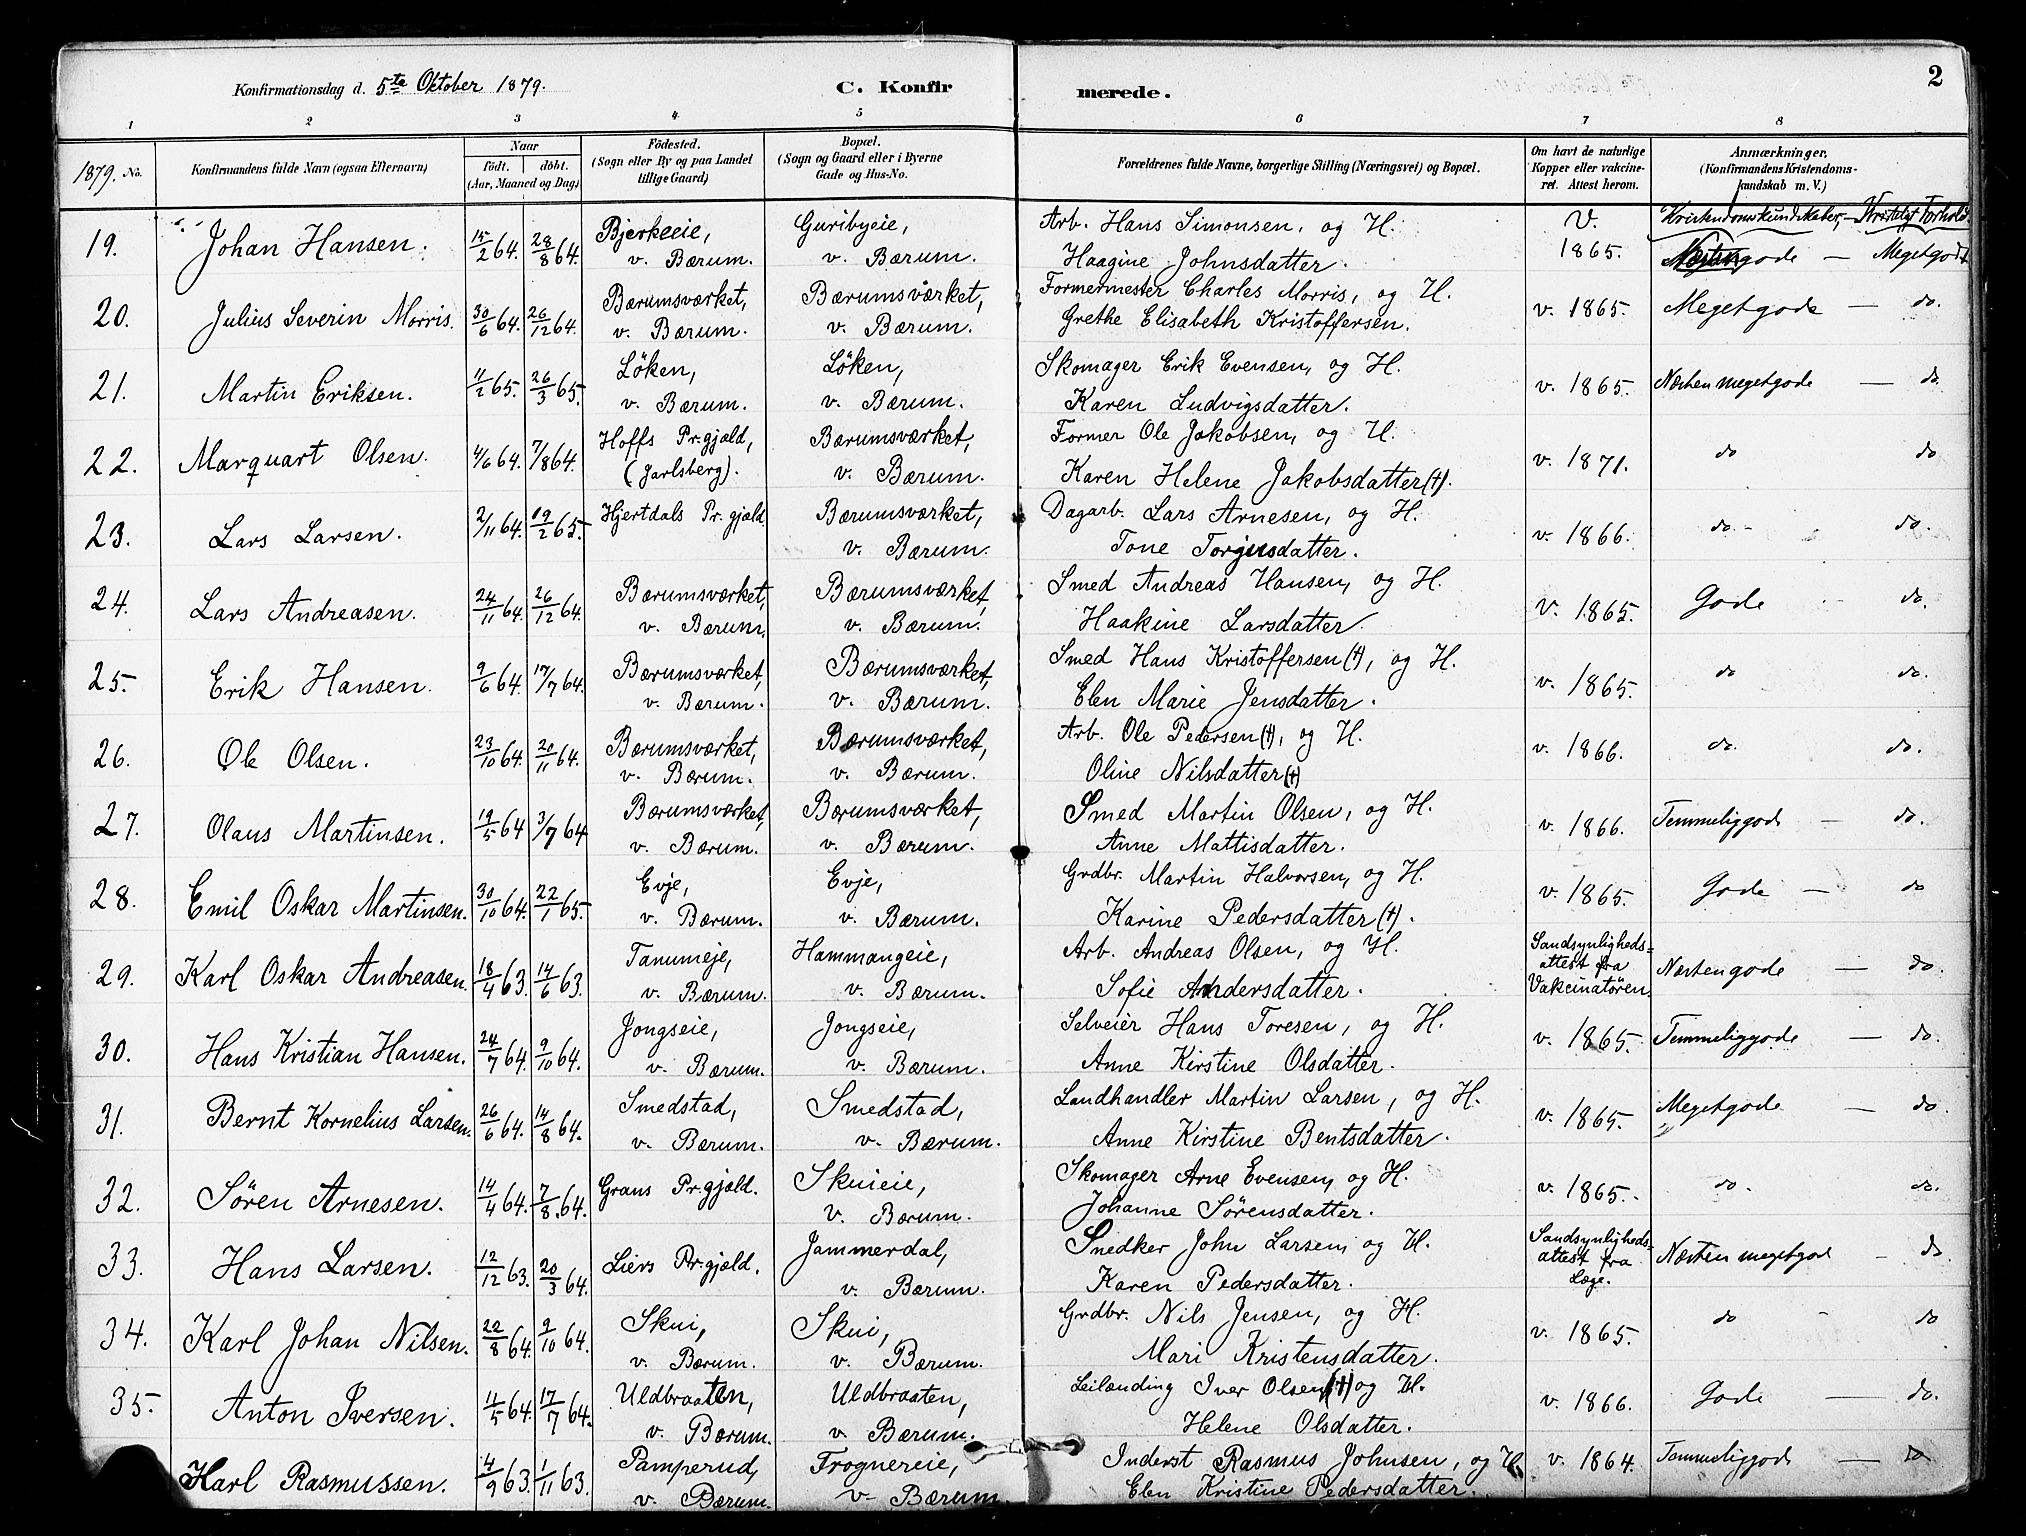 2
Konfirmationsdag d. 5te Oktober 1879. C. Konfirmerede.
1 2 3 4 5 6 7 8
1879. No.
Konfirmandens fulde Navn (ogsaa Efternavn)
Naar
født. døbt.
(Aar, Maaned og Dag)
Födested.
(Sogn eller By og paa Landet
tillige Gaard)
Bopæl.
(Sogn og Gaard eller i Byerne
Gade og Hus-No.
Forældrenes fulde Navne, borgerlige Stilling (Næringsvei) og Bopæl.
Om havt de naturlige
Kopper eller vakcine-
ret. Attest herom.
Anmærkninger.
(Konfirmandens Kristendoms-
kundskab m. V.)
Kristendomskundskaber, - Kristeligt Forhold
19. Johan Hansen. 15/2 64. 28/8 64. Bjerkeeie, v. Bærum. Guribyeie, v. Bærum. Arb. Hans Simonsen, og H.
Haagine Johnsdatter. V. 1865. gode — Megetgodt
20. Julius Severin Morris. 30/6 64. 26/12 64. Bærumsværket, v. Bærum. Bærumsværket, v. Bærum. Formermester Charles Morris, og H.
Grethe Elisabeth Kristoffersen. v. 1865. Megetgode — do.
21. Martin Eriksen. 11/2 65. 26/3 65. Löken, v. Bærum. Löken, v. Bærum. Skomager Erik Evensen, og H.
Karen Ludvigsdatter. v. 1865. Næsten megetgode — do.
22. Marquart Olsen. 4/6 64. 7/8 64. Hoffs Pr.gjæld, (Jarlsberg). Bærumsværket, v. Bærum. Former Ole Jakobsen, og H.
Karen Helene Jakobsdatter (†). v. 1871. do do
23. Lars Larsen. 2/11 64. 19/2 65. Hjertdals Pr.gjæld Bærumsværket, v. Bærum. Dagarb. Lars Arnesen, og H.
Tone Torgusdatter. v. 1866. do. - do.
24. Lars Andreasen. 24/11 64. 26/12 64. Bærumsværket, v. Bærum. Bærumsværket, v. Bærum. Smed Andreas Hansen, og H.
Haakine Larsdatter. v. 1865. Gode - do.
25. Erik Hansen. 9/6 64. 17/7 64. Bærumsværket, v. Bærum. Bærumsværket, v. Bærum. Smed Hans Kristoffersen (†), og H.
Elen Marie Jensdatter. v. 1865. do do.
26. Ole Olsen. 23/10 64. 20/11 64. Bærumsværket, v. Bærum. Bærumsværket, v. Bærum. Arb. Ole Pedersen (†), og H.
Oline Nilsdatter (†) v. 1866. do. do.
27. Olaus Martinsen. 19/5 64 3/7 64 Bærumsværket, v. Bærum. Bærumsværket, v. Bærum. Smed Martin Olsen, og H.
Anne Mattisdatter. v. 1866. Temmeliggode — do.
28. Emil Oskar Martinsen. 30/10 64. 22/1 65. Evje, v. Bærum. Evje, v. Bærum. Grdbr. Martin Halvorsen, og H.
Karine Pedersdatter (†). v. 1865. Gode — do
29. Karl Oskar Andreasen. 18/4 63. 14/6 63. Tanumeje, v. Bærum. Hammangeie, v. Bærum. Arb. Andreas Olsen, og H.
Sofie Andersdatter. Sandsynligheds=
attest fra
Vakcinatören. Næstengode — do.
30. Hans Kristian Hansen. 24/7 64. 9/10 64. Jongseie, v. Bærum. Jongseie, v. Bærum. Selveier Hans Toresen, og H.
Anne Kirstine Olsdatter. v. 1865. Temmeliggode — do.
31. Bernt Kornelius Larsen. 26/6 64. 14/8 64. Smedstad, v. Bærum. Smedstad, v. Bærum. Landhandler Martin Larsen, og H.
Anne Kirstine Bentsdatter. v. 1865. Megetgode — do.
32. Sören Arnesen. 14/4 64. 7/8 64. Grans Pr.gjæld. Skuieie, v. Bærum. Skomager Arne Evensen, og H.
Johanne Sörensdatter. v. 1865. do. do.
33. Hans Larsen. 12/12 63. 20/3 64. Liers Pr.gjæld. Jammerdal, v. Bærum. Snedker John Larsen, og H.
Karen Pedersdatter. Sandsynligheds=
attest fra
Læge. Næsten megetgod - do
34. Karl Johan Nilsen. 22/8 64. 9/10 64. Skui, v. Bærum. Skui, v. Bærum. Grdbr. Nils Jensen, og H.
Mari Kristensdatter. v. 1865. do - do
35. Anton Iversen. 11/5 64. 17/7 64. Uldbraaten, v. Bærum. Uldbraaten, v. Bærum. Leilænding Iver Olsen (†) og H.
Helene Olsdatter. v. 1866. Gode — do.
Karl Rasmussen. 4/9 63. 1/11 63. Pamperud, v. Bærum. Frognereie, v. Bærum. Inderst Rasmus Johnsen, og H.
Elen Kristine Pedersdatter. v. 1864. Temmeliggode — do